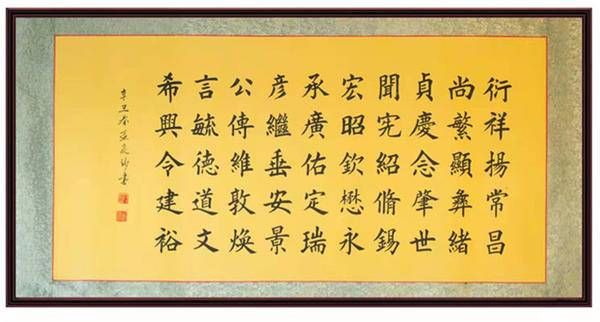 希言公彥承宏聞貞尚衍
興毓傳繼廣昭宪慶繁祥
令徳維垂佑欽紹念顯揚
建道敦安定懋脩肇彝常
裕文煥景瑞永錫世緒昌
辛丑春書